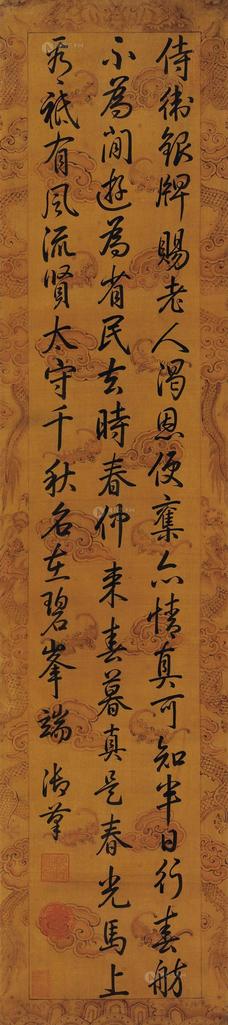 侍衛銀牌賜老人渴恩便奪亦情真可知半日行春舫
不為閒遊為省民去時春仲來春暮真是春光馬上
看祗有風流賢太守千秋名在碧峯端 御筆